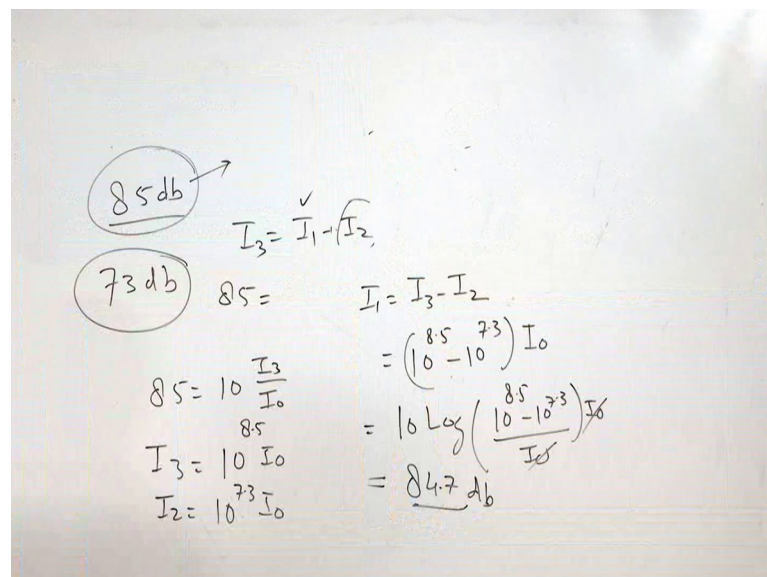 85db
I₃ = I₁ + I₂
73db
85 =
I₁ = I₃ - I₂
= (10^8.5 - 10^7.3) I₀
85 = 10 I₃/I₀
I₃ = 10^8.5 I₀
I₂ = 10^7.3 I₀
= 10 Log ((10^8.5 - 10^7.3)/I₀) I₀
= 84.7 db